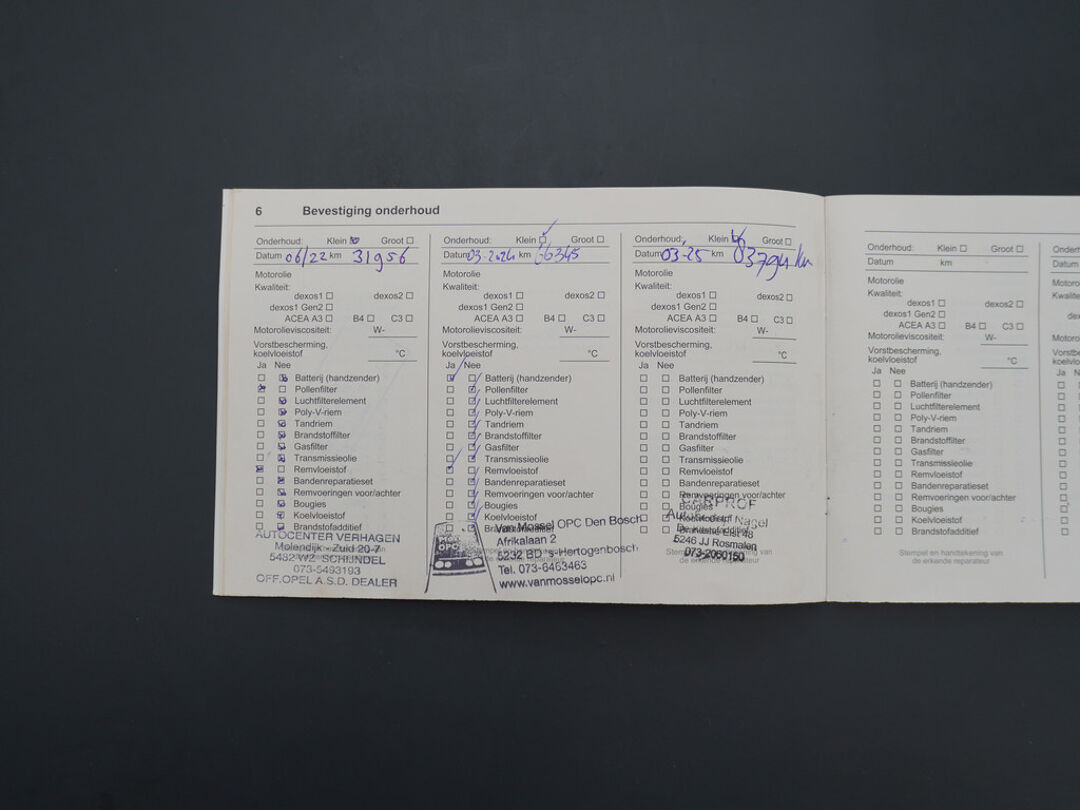 6 Bevestiging onderhoud
Onderhoud: Klein Groot
Datum 06/22 km 31956
Motorolie
Kwaliteit:
dexos1 dexos2
dexos1 Gen2
ACEA A3 B4 C3
Motorolieviscositeit: W-
Vorstbescherming,
koelvloeistof °C
Ja Nee
Batterij (handzender)
Pollenfilter
Luchtfilterelement
Poly-V-riem
Tandriem
Brandstoffilter
Gasfilter
Transmissieolie
Remvloeistof
Bandenreparatieset
Remvoeringen voor/achter
Bougies
Koelvloeistof
Brandstofadditief
AUTOCENTER VERHAGEN
Molendijk - Zuid 20-7
5482 WZ SCHIJNDEL
073-5493193
OFF.OPEL A.S.D. DEALER
Onderhoud: Klein Groot
Datum 03-2024 km 66345
Motorolie
Kwaliteit:
dexos1 dexos2
dexos1 Gen2
ACEA A3 B4 C3
Motorolieviscositeit: W-
Vorstbescherming,
koelvloeistof °C
Ja Nee
Batterij (handzender)
Pollenfilter
Luchtfilterelement
Poly-V-riem
Tandriem
Brandstoffilter
Gasfilter
Transmissieolie
Remvloeistof
Bandenreparatieset
Remvoeringen voor/achter
Bougies
Koelvloeistof
Brandstofadditief
Van Mossel OPC Den Bosch
Afrikalaan 2
5232 BD 's-Hertogenbosch
Tel. 073-6463463
www.vanmosselopc.nl
OPC
Onderhoud: Klein Groot
Datum 03-25 km
Motorolie
Kwaliteit:
dexos1 dexos2
dexos1 Gen2
ACEA A3 B4 C3
Motorolieviscositeit: W-
Vorstbescherming,
koelvloeistof °C
Ja Nee
Batterij (handzender)
Pollenfilter
Luchtfilterelement
Poly-V-riem
Tandriem
Brandstoffilter
Gasfilter
Transmissieolie
Remvloeistof
Bandenreparatieset
Remvoeringen voor/achter
Bougies
Koelvloeistof
Brandstofadditief
CARPROF
Nagel
5246 JJ Rosmalen
073-2060160
Onderhoud: Klein Groot
Datum km
Motorolie
Kwaliteit:
dexos1 dexos2
dexos1 Gen2
ACEA A3 B4 C3
Motorolieviscositeit: W-
Vorstbescherming,
koelvloeistof °C
Ja Nee
Batterij (handzender)
Pollenfilter
Luchtfilterelement
Poly-V-riem
Tandriem
Brandstoffilter
Gasfilter
Transmissieolie
Remvloeistof
Bandenreparatieset
Remvoeringen voor/achter
Bougies
Koelvloeistof
Brandstofadditief
Stempel en handtekening van
de erkende reparateur